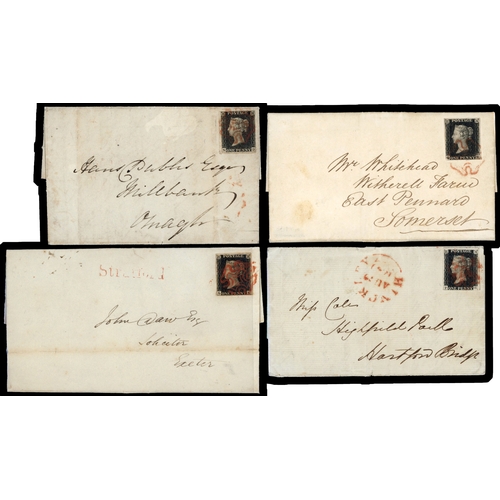 POSTAGE
ONE PENNY
Hans Dubbs Esqr
Millbank
Omagh
POSTAGE
ONE PENNY
Mr. Whitehead
Witherell Farm
East Pennard
Somerset
POSTAGE
ONE PENNY
John Daw Esq
Solicitor
Exeter
POSTAGE
ONE PENNY
Miss Cole
Highfield Park
Hartford Bridge